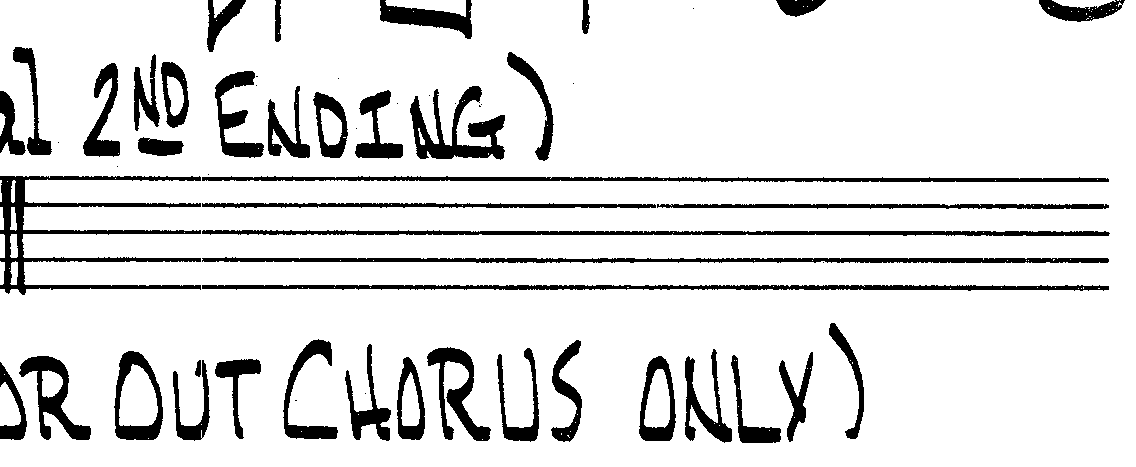 al 2ND ENDING)
OR OUT CHORUS ONLY)